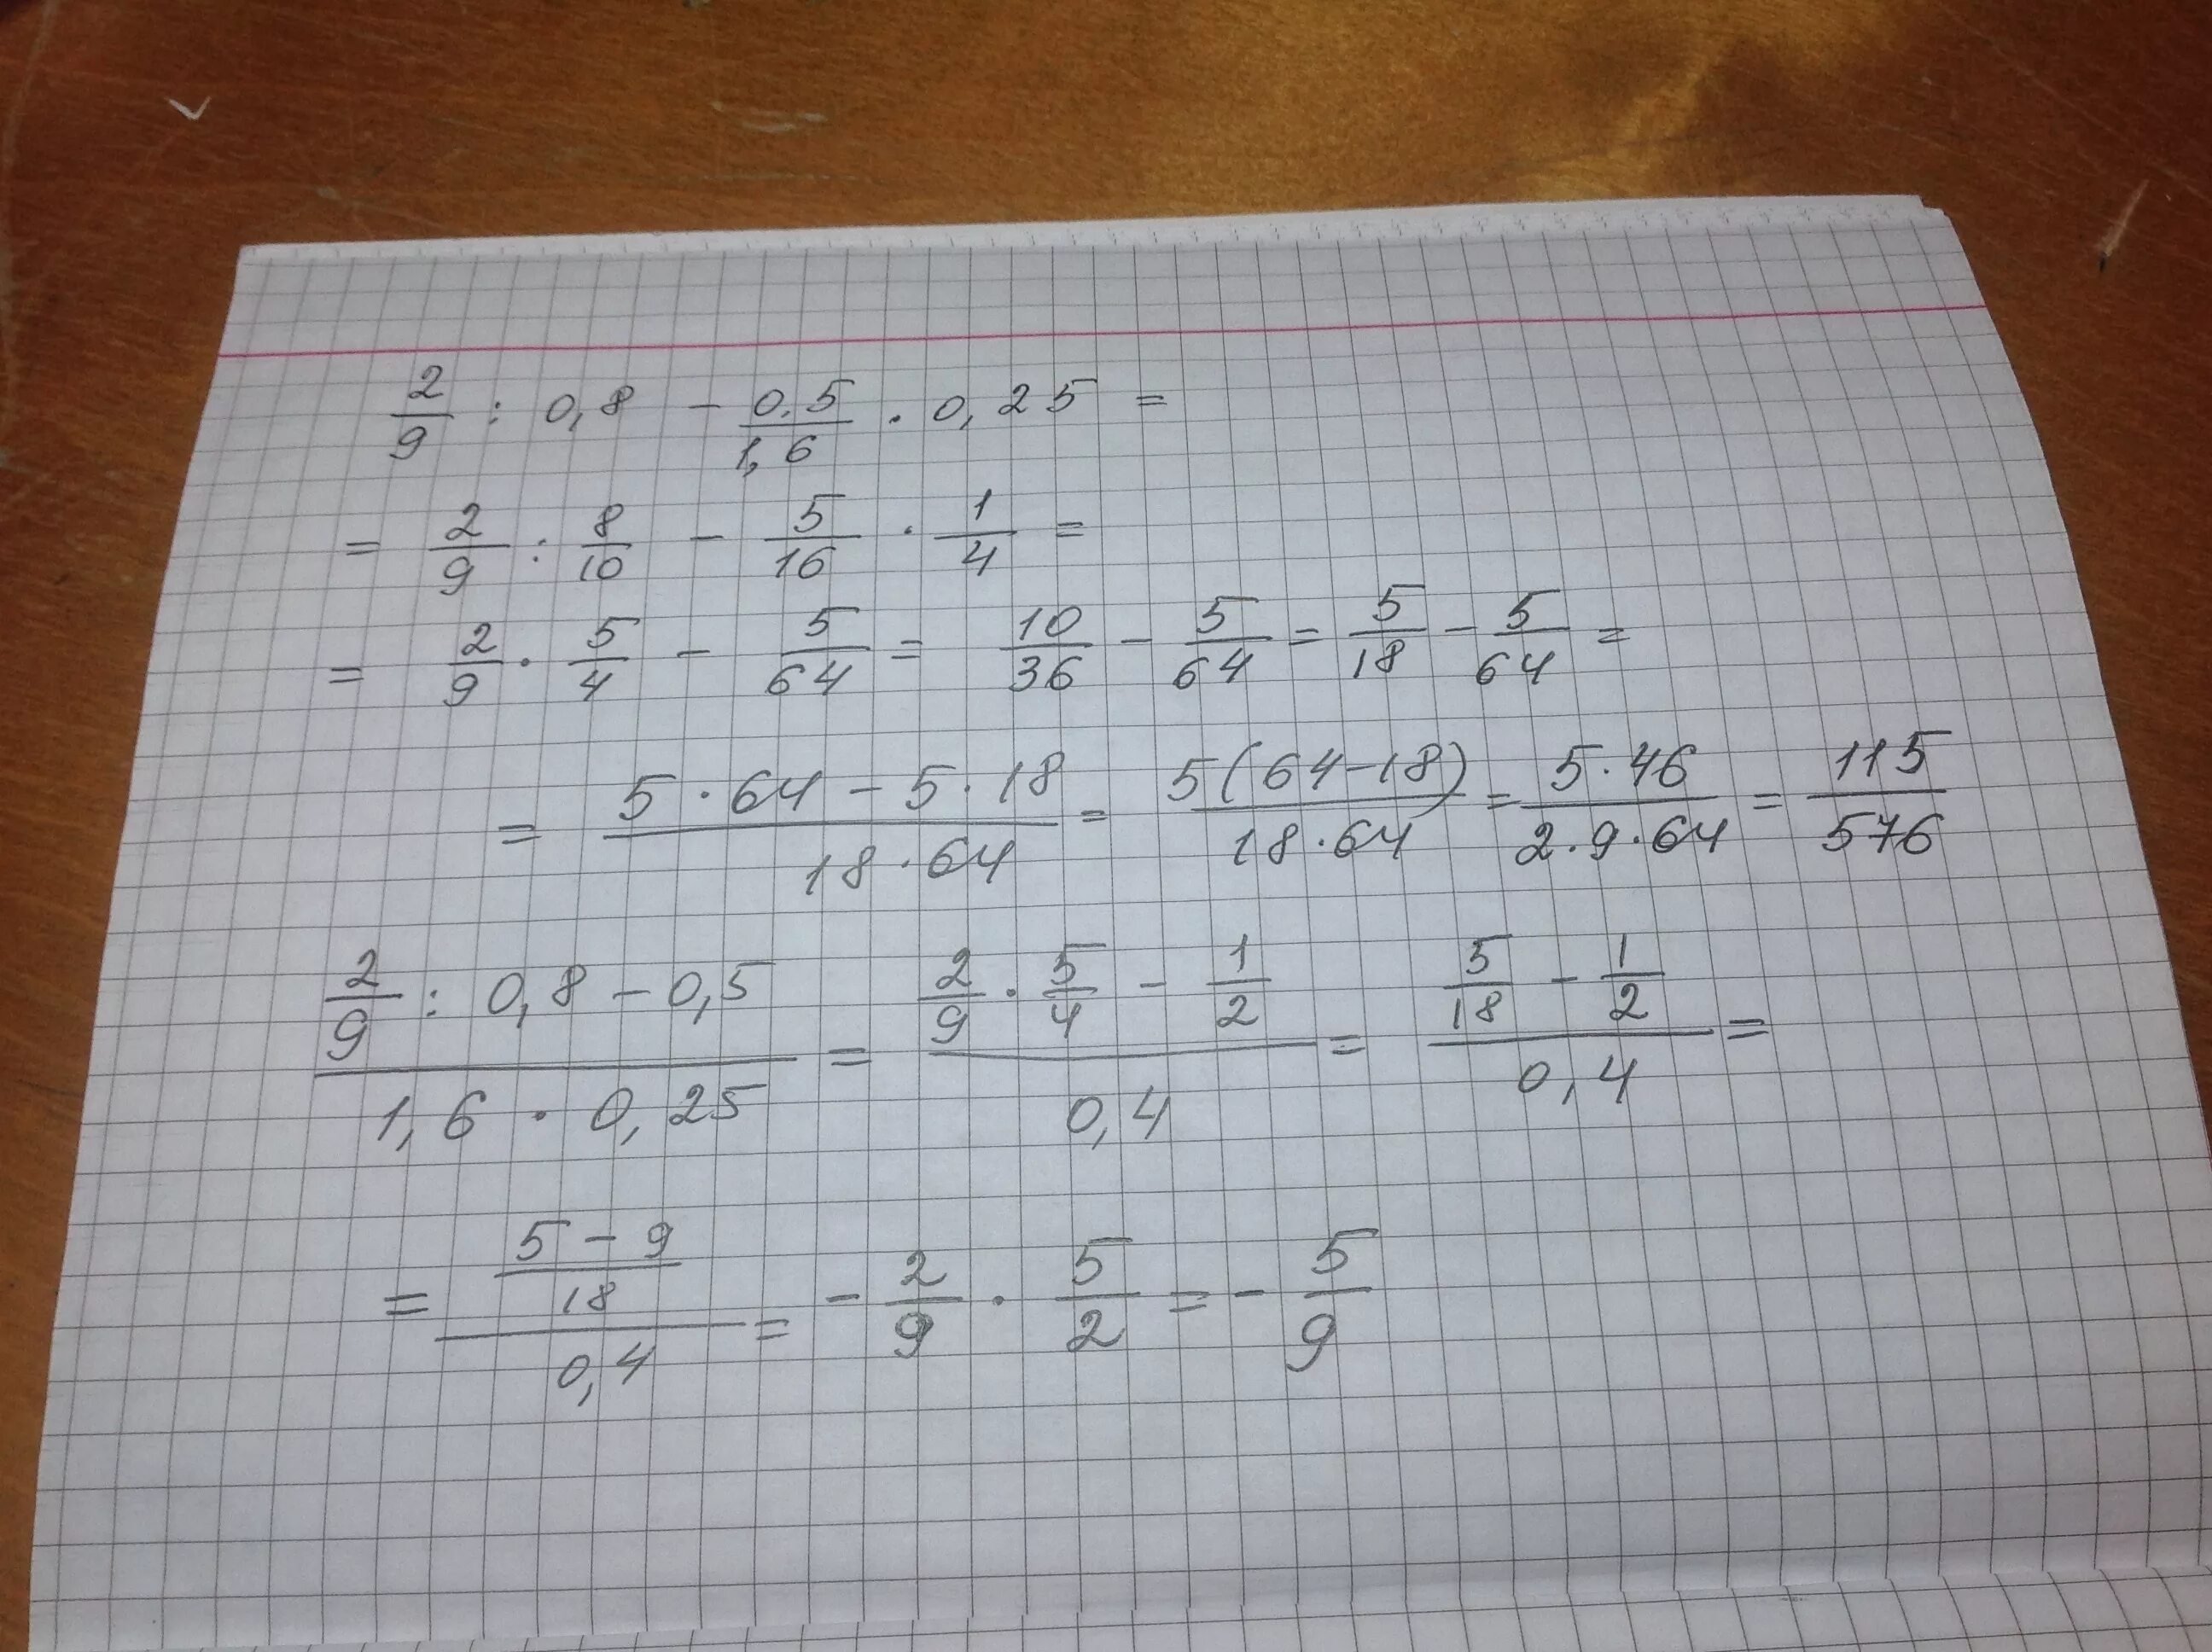 2/9 : 0,8 - 0,5/1,6 · 0,25 =
= 2/9 : 8/10 - 5/16 · 1/4 =
= 2/9 · 5/4 - 5/64 = 10/36 - 5/64 = 5/18 - 5/64 =
= (5 · 64 - 5 · 18)/(18 · 64) = 5(64-18)/(18 · 64) = (5 · 46)/(2 · 9 · 64) = 115/576
(2/9 : 0,8 - 0,5)/(1,6 · 0,25) = (2/9 · 5/4 - 1/2)/0,4 = (5/18 - 1/2)/0,4 =
= ((5 - 9)/18)/0,4 = - 2/9 · 5/2 = - 5/9